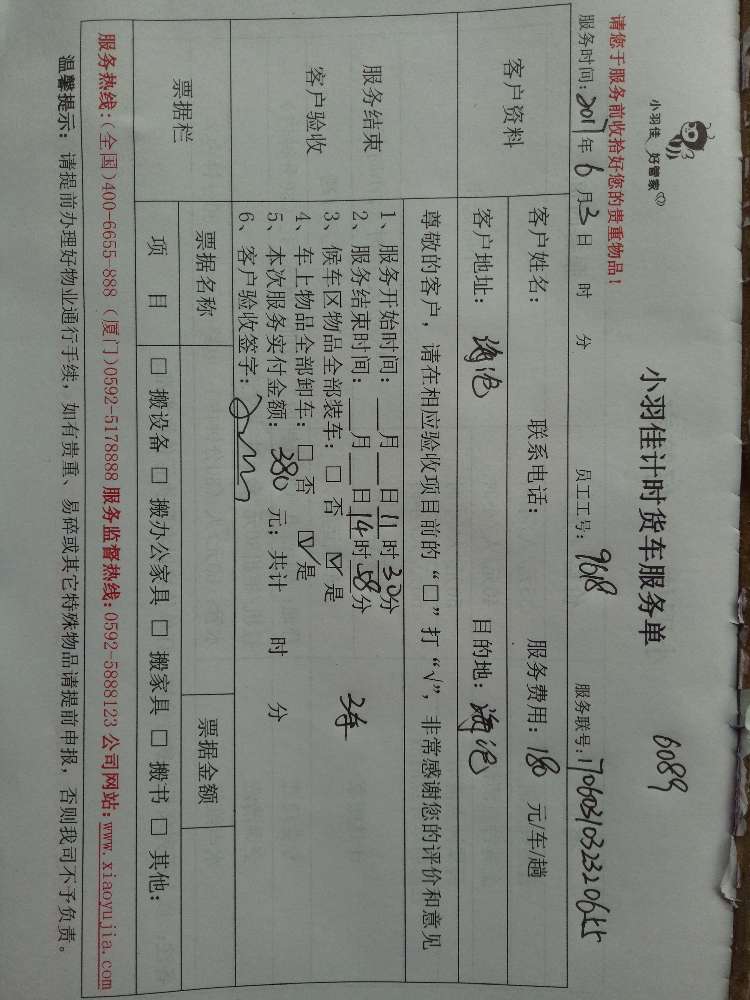 小羽佳 好管家
小羽佳计时货车服务单
6089
请您于服务前收拾好您的贵重物品！
服务时间：2017年6月3日 时 分 员工工号：9618 服务联号：1706031032320655
客户资料
客户姓名： 联系电话： 服务费用：180 元/车/趟
客户地址：海沧 目的地：海沧
服务结束
客户验收
尊敬的客户，请在相应验收项目前的“□”打“√”，非常感谢您的评价和意见
1、服务开始时间：__月__日11时30分
2、服务结束时间：__月__日14时58分
3、候车区物品全部装车：□ 否 ☑ 是
4、车上物品全部卸车：□ 否 ☑ 是
5、本次服务实付金额：380 元；共计 时 分
6、客户验收签字：
票据栏
票据名称
票据金额
项 目
□ 搬设备 □ 搬办公家具 □ 搬家具 □ 搬书 □ 其他：
服务热线：(全国)400-6655-888 (厦门)0592-5178888 服务监督热线：0592-5888123 公司网站：www.xiaoyujia.com
温馨提示： 请提前办理好物业通行手续，如有贵重、易碎或其它特殊物品请提前申报，否则我司不予负责。